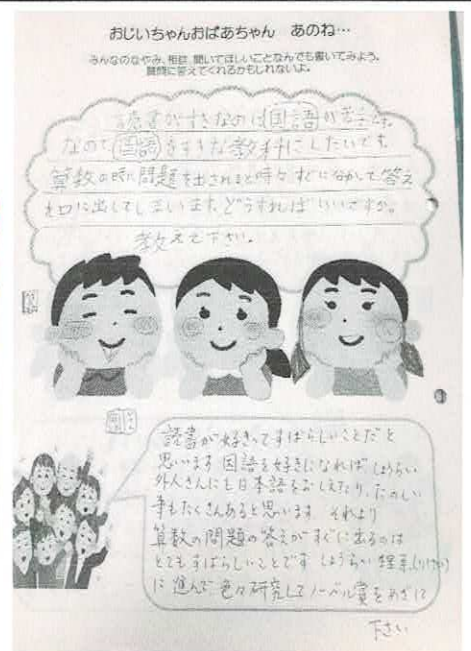 おじいちゃんおばあちゃん あのね…
みんなのなやみ、相談、聞いてほしいことなんでも書いてみよう。
質問に答えてくれるかもしれないよ。
読書がすきなのに国語が苦手です。
なので国語をすきな教科にしたいです。
算数の時に問題を出されると時々すぐに分かって答え
を口に出してしまいます。どうすればいいですか。
教えて下さい。
読書が好きってすばらしいことだと
思います 国語を好きになれば しょうらい
外人さんにも日本語をおしえたり、たのしい
事もたくさんあると思います それより
算数の問題の答えがすぐに出るのは
とてもすばらしいことです しょうらい 理系(りけい)
に進んで 色々研究して ノーベル賞をめざして
下さい